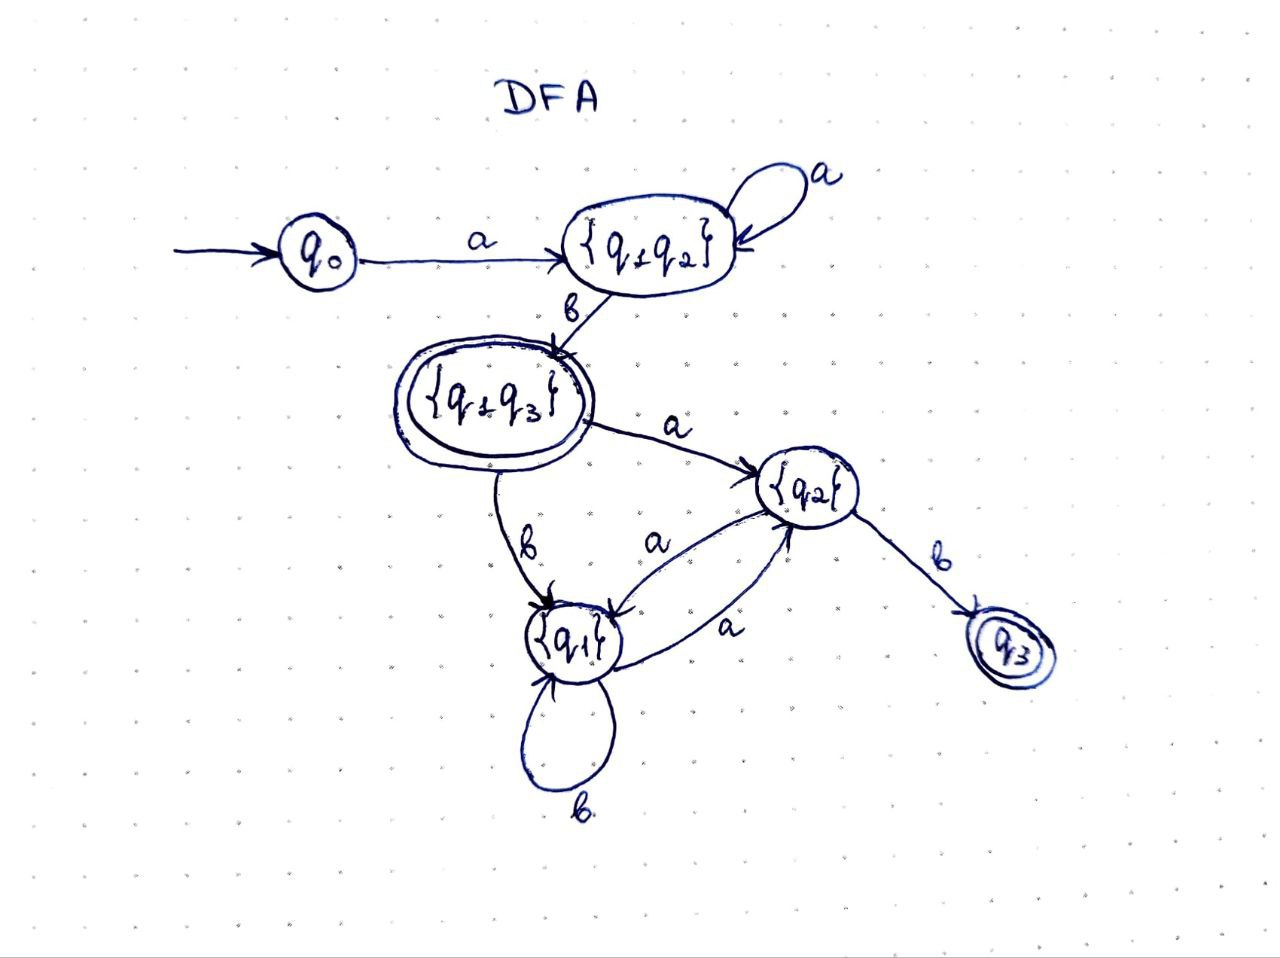 DFA
a
q0 a {q1q2}
b
{q1q3} a
{q2}
b a b
{q1} a q3
b